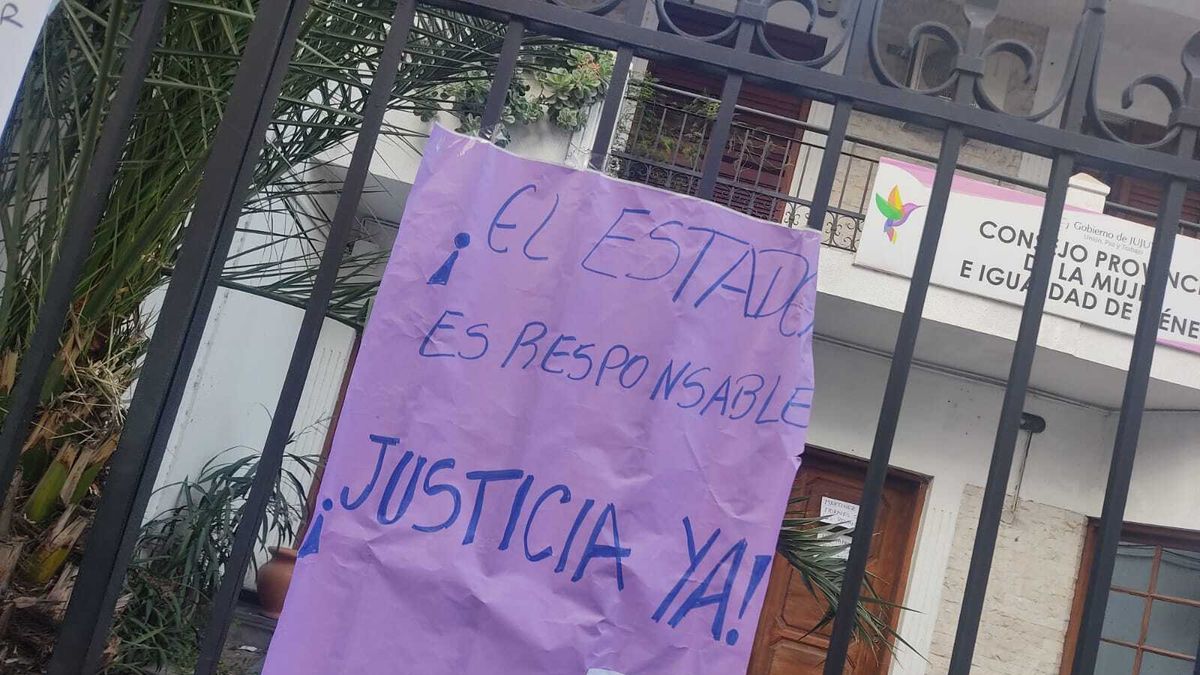 R
¡EL ESTADO
ES RESPONSABLE
¡JUSTICIA YA!
Gobierno de JUJUY
Unión, Paz y Trabajo
CONSEJO PROVINCI
DE LA MUJE
E IGUALDAD DE GÉNE